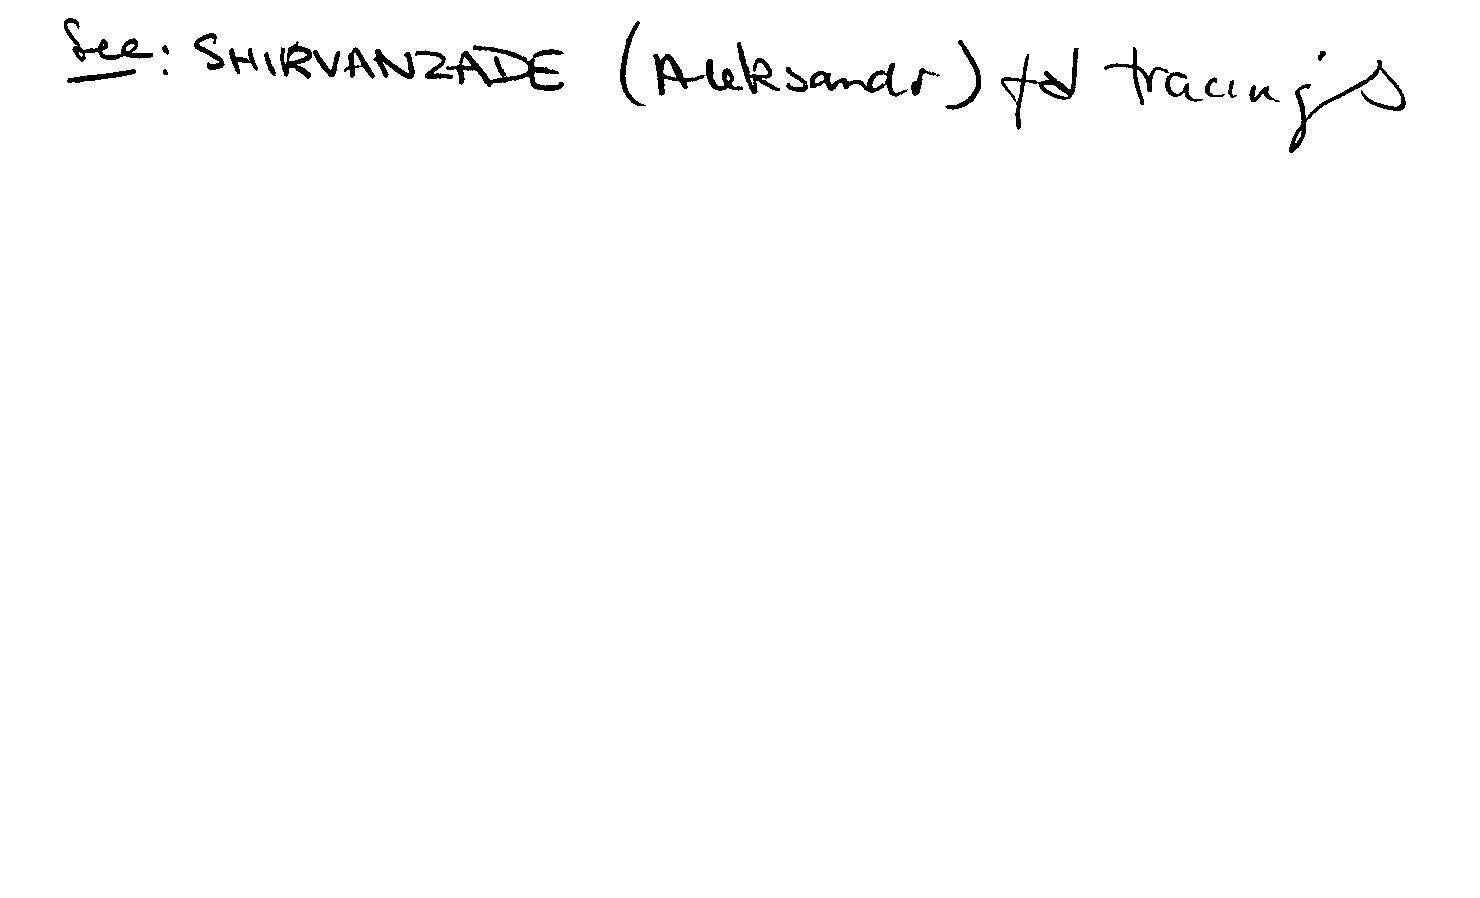 See: SHIRVANZADE (Aleksandr) for tracings